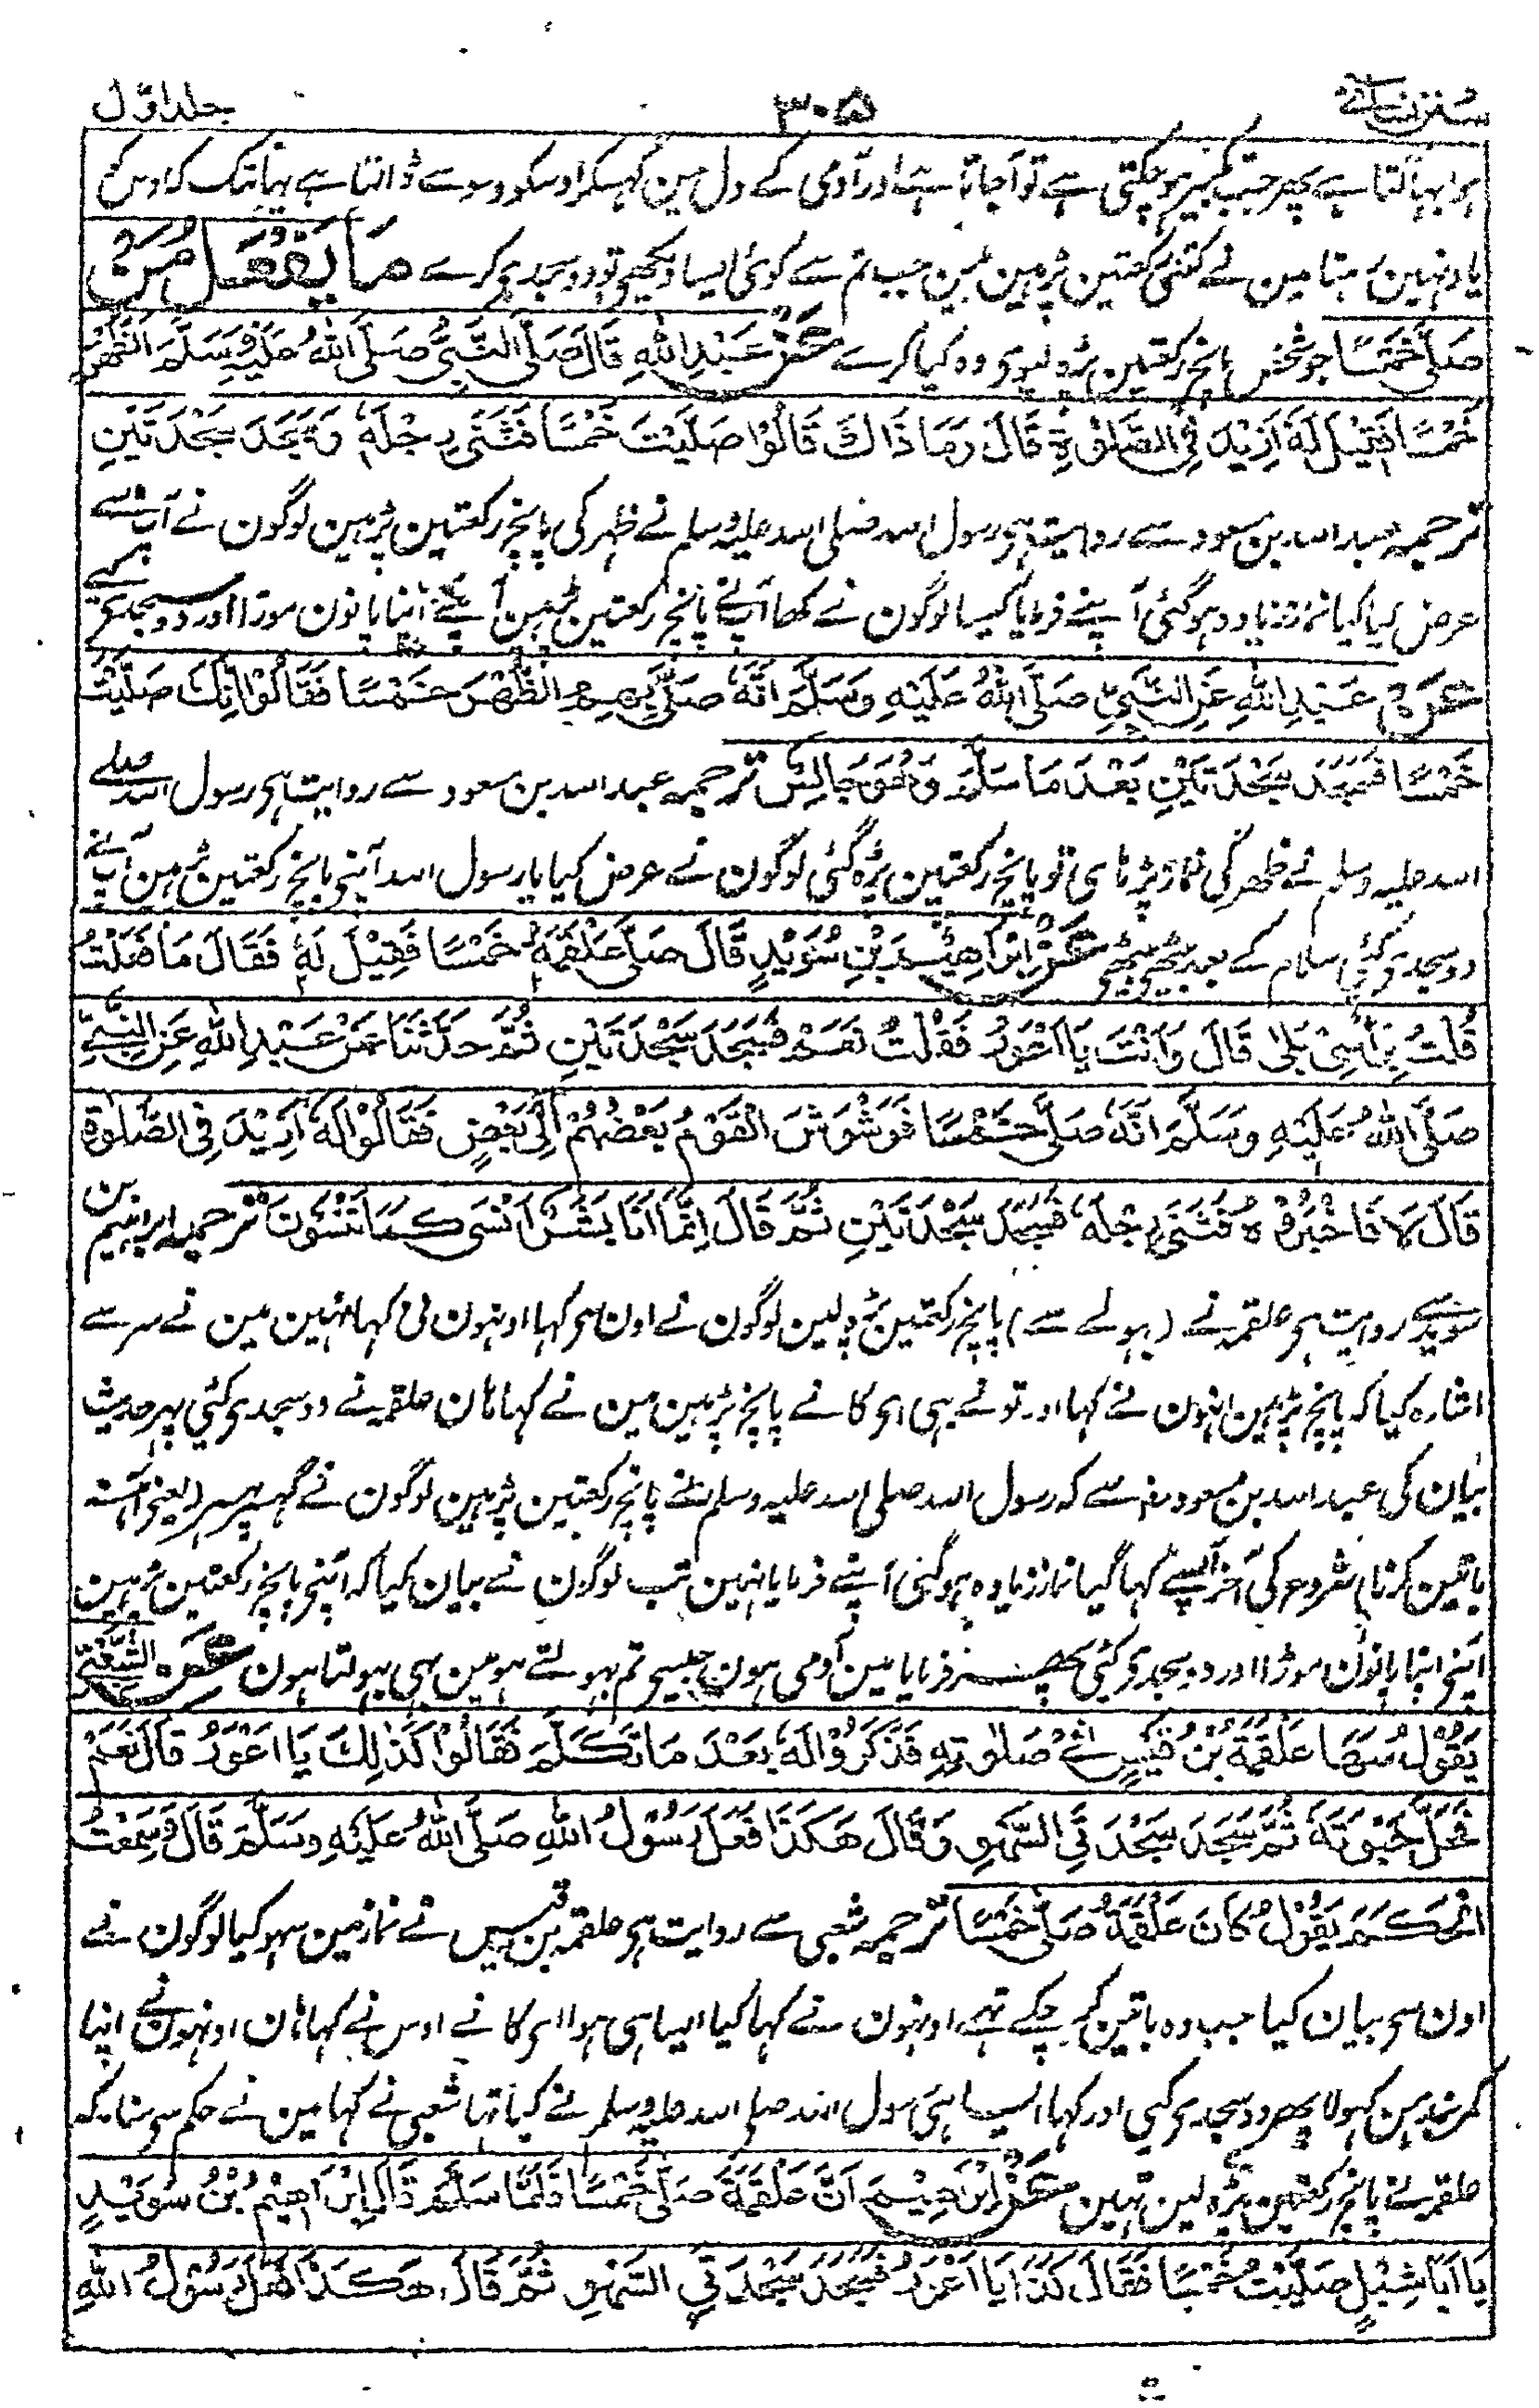 سنن نسائی ۳۰۵ جلد اوّل
ہوا بہاگتا ہے پھر جب تکبیر ہو چکتی ہے تو آجاتا ہے اور آدمی کے دل مین گہسکر اوسکو وسوسے ڈالتا ہے یہانتک کہ اوس کو
یاد نہین رہتا مین نے کتنی رکعتین پڑہین ہین جب تم سے کوئی ایسا دیکھے تو دو سجدے کرے مَا يَفْعَلُ مَنْ
صَلَّى خَمْسًا جو شخص پانچ رکعتین پڑہ لیوے وہ کیا کرے عَنْ عَبْدِ اللهِ قَالَ صَلَّى النَّبِيُّ صَلَّى اللهُ عَلَيْهِ وَسَلَّمَ الظُّهْرَ
خَمْسًا فَقِيْلَ لَهٗ اَزِيْدَ فِي الصَّلٰوةِ قَالَ وَمَا ذَاكَ قَالُوْا صَلَّيْتَ خَمْسًا فَثَنٰى رِجْلَهٗ وَسَجَدَ سَجْدَتَيْنِ
ترجمہ عبد اللہ بن مسعود سے روایت ہے رسول اللہ صلی اللہ علیہ وسلم نے ظہر کی پانچ رکعتین پڑہین لوگون نے آپ سے
عرض کیا کیا نماز زیادہ ہو گئی آپنے فرمایا کیسا لوگون نے کھا آپنے پانچ رکعتین پڑہین آپنے اپنا پانون موڑا اور دو سجدے کیے
عَنْ عَبْدِ اللهِ عَنِ النَّبِيِّ صَلَّى اللهُ عَلَيْهِ وَسَلَّمَ اَنَّهٗ صَلّٰى بِهِمُ الظُّهْرَ خَمْسًا فَقَالُوْا اِنَّكَ صَلَّيْتَ
خَمْسًا فَسَجَدَ سَجْدَتَيْنِ بَعْدَ مَا سَلَّمَ وَهُوَ جَالِسٌ ترجمہ عبد اللہ بن مسعود سے روایت ہے رسول اللہ صلے
اللہ علیہ وسلم نے ظھر کی نماز پڑہائی تو پانچ رکعتین پڑہ گئی لوگون نے عرض کیا یا رسول اللہ آپنے پانچ رکعتین پڑہین آپنے
دو سجدے کئے سلام کے بعد بیٹھے بیٹھے عَنْ اِبْرَاهِيْمَ بْنِ سُوَيْدٍ قَالَ صَلّٰى عَلْقَمَةُ خَمْسًا فَقِيْلَ لَهٗ فَقَالَ مَا فَعَلْتُ
قُلْتُ بِرَأْسِيْ بَلٰى قَالَ وَاَنْتَ يَا اَعْوَرُ فَقُلْتُ نَعَمْ فَسَجَدَ سَجْدَتَيْنِ ثُمَّ حَدَّثَنَا عَنْ عَبْدِ اللهِ عَنِ النَّبِيِّ
صَلَّى اللهُ عَلَيْهِ وَسَلَّمَ اَنَّهٗ صَلّٰى خَمْسًا فَوَشْوَشَ الْقَوْمُ بَعْضُهُمْ اِلٰى بَعْضٍ فَقَالُوْا لَهٗ اَزِيْدَ فِي الصَّلٰوةِ
قَالَ لَا فَاَخْبَرُوْهُ فَثَنٰى رِجْلَهٗ فَسَجَدَ سَجْدَتَيْنِ ثُمَّ قَالَ اِنَّمَا اَنَا بَشَرٌ اَنْسٰى كَمَا تَنْسَوْنَ ترجمہ ابراہیم بن
سوید سے روایت ہے علقمہ نے (بہولے سے) پانچ رکعتین پڑہ لین لوگون نے اون سے کہا اونہون نے کہا نہین مین نے سر سے
اشارہ کیا کہ پانچ پڑہین انہون نے کہا اور تو نے بہی اے کانے پانچ پڑہین مین نے کہا ہان علقمہ نے دو سجدے کئے پہر حدیث
بیان کی عبد اللہ بن مسعود سے کہ رسول اللہ صلی اللہ علیہ وسلم نے پانچ رکعتین پڑہین لوگون نے گہسر پہسر (یعنے آہستہ
باتین کرنا) شروع کی آخر آپسے کہا گیا نماز زیادہ ہوگئی آپنے فرمایا نہین تب لوگون نے بیان کیا کہ آپنے پانچ رکعتین پڑہین
آپنے اپنا پانون موڑا اور دو سجدے کئے پھر فرمایا مین آدمی ہون جیسے تم بہولتے ہو مین بہی بہولتا ہون عَنِ الشَّعْبِيِّ
يَقُوْلُ سَهَا عَلْقَمَةُ بْنُ قَيْسٍ فِيْ صَلٰوتِهٖ فَذَكَرُوْا لَهٗ بَعْدَ مَا تَكَلَّمَ فَقَالُوْا كَذٰلِكَ يَا اَعْوَرُ قَالَ نَعَمْ
فَحَلَّ حَبْوَتَهٗ ثُمَّ سَجَدَ سَجْدَتَيِ السَّهْوِ وَقَالَ هٰكَذَا فَعَلَ رَسُوْلُ اللهِ صَلَّى اللهُ عَلَيْهِ وَسَلَّمَ قَالَ وَسَمِعْتُ
الْحَكَمَ يَقُوْلُ كَانَ عَلْقَمَةُ صَلّٰى خَمْسًا ترجمہ شعبی سے روایت ہے علقمہ بن قیس نے نماز مین سہو کیا لوگون نے
اون سے بیان کیا جب وہ باتین کر چکے تہے اونہون نے کہا کیا ایسا ہی ہوا اے کانے اوس نے کہا ہان اونہون نے اپنا
کمر بند مین کہولا پھر دو سجدے کیے اور کہا ایسا ہی رسول اللہ صلی اللہ علیہ وسلم نے کیا تہا شعبی نے کہا مین نے حکم سے سنا کہ
علقمہ نے پانچ رکعتین پڑہ لین تہین عَنْ اِبْرَاهِيْمَ اَنَّ عَلْقَمَةَ صَلّٰى خَمْسًا فَلَمَّا سَلَّمَ قَالَ اِبْرَاهِيْمُ بْنُ سُوَيْدٍ
يَا اَبَا شِبْلٍ صَلَّيْتَ خَمْسًا فَقَالَ كَذَا يَا اَعْوَرُ فَسَجَدَ سَجْدَتَيِ السَّهْوِ ثُمَّ قَالَ هٰكَذَا فَعَلَ رَسُوْلُ اللهِ